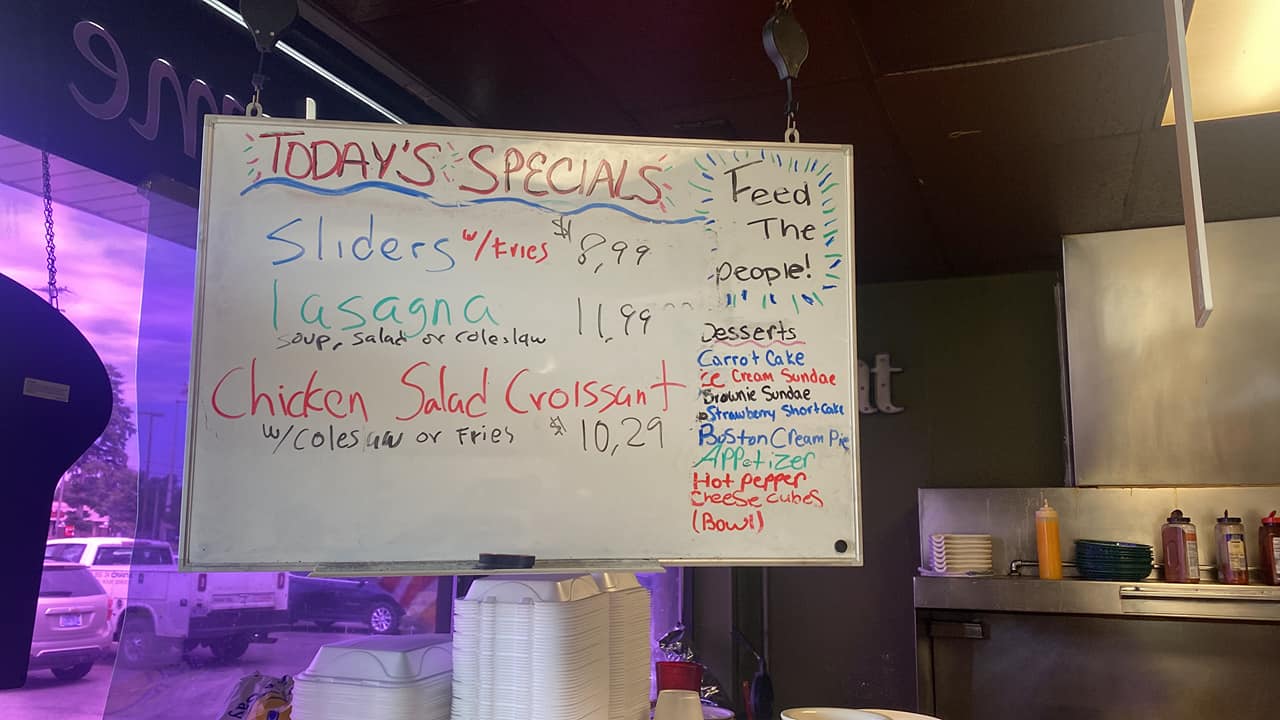 TODAY'S SPECIALS
Sliders w/Fries $8,99
lasagna 11,99
soup, salad or coleslaw
Chicken Salad Croissant
w/coleslaw or Fries $10,29
Feed
The
people!
Desserts
Carrot Cake
ice Cream Sundae
Brownie Sundae
Strawberry ShortCake
Boston Cream Pie
Appetizer
Hot pepper
cheese cubes
(Bowl)